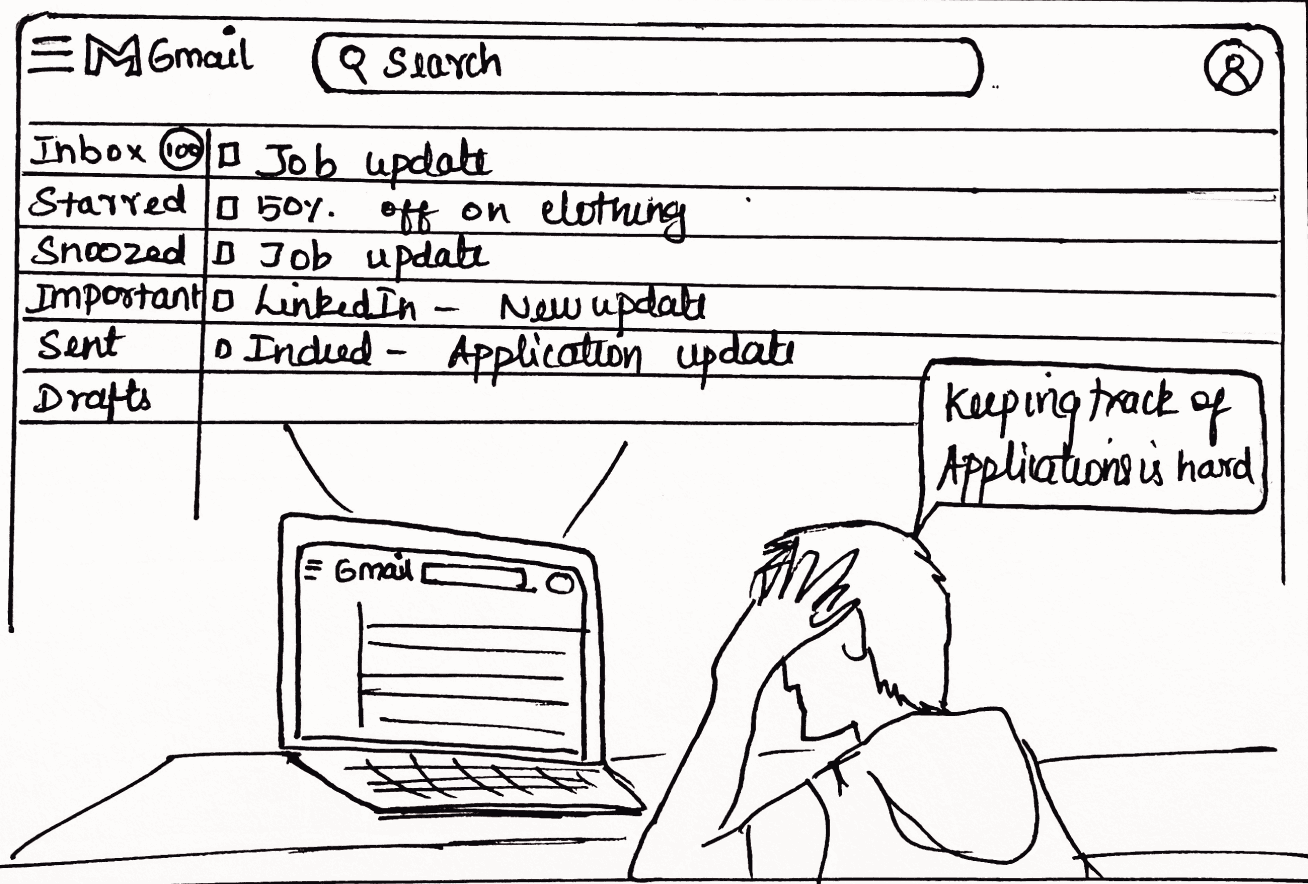 Gmail
Search
Inbox 100
Job update
Starred
50% off on clothing
Snoozed
Job update
Important
LinkedIn - New update
Sent
Indeed - Application update
Drafts
Keeping track of
Applications is hard
Gmail